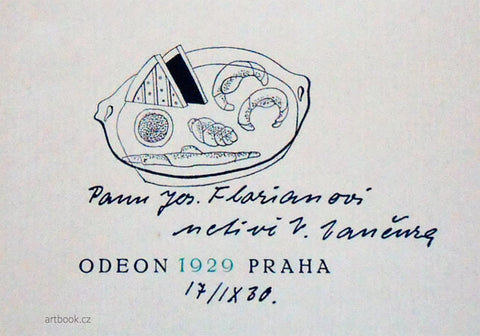 Panu Jos. Florianovi
uctivě V. Vančura
ODEON 1929 PRAHA
17/IX 30.
artbook.cz